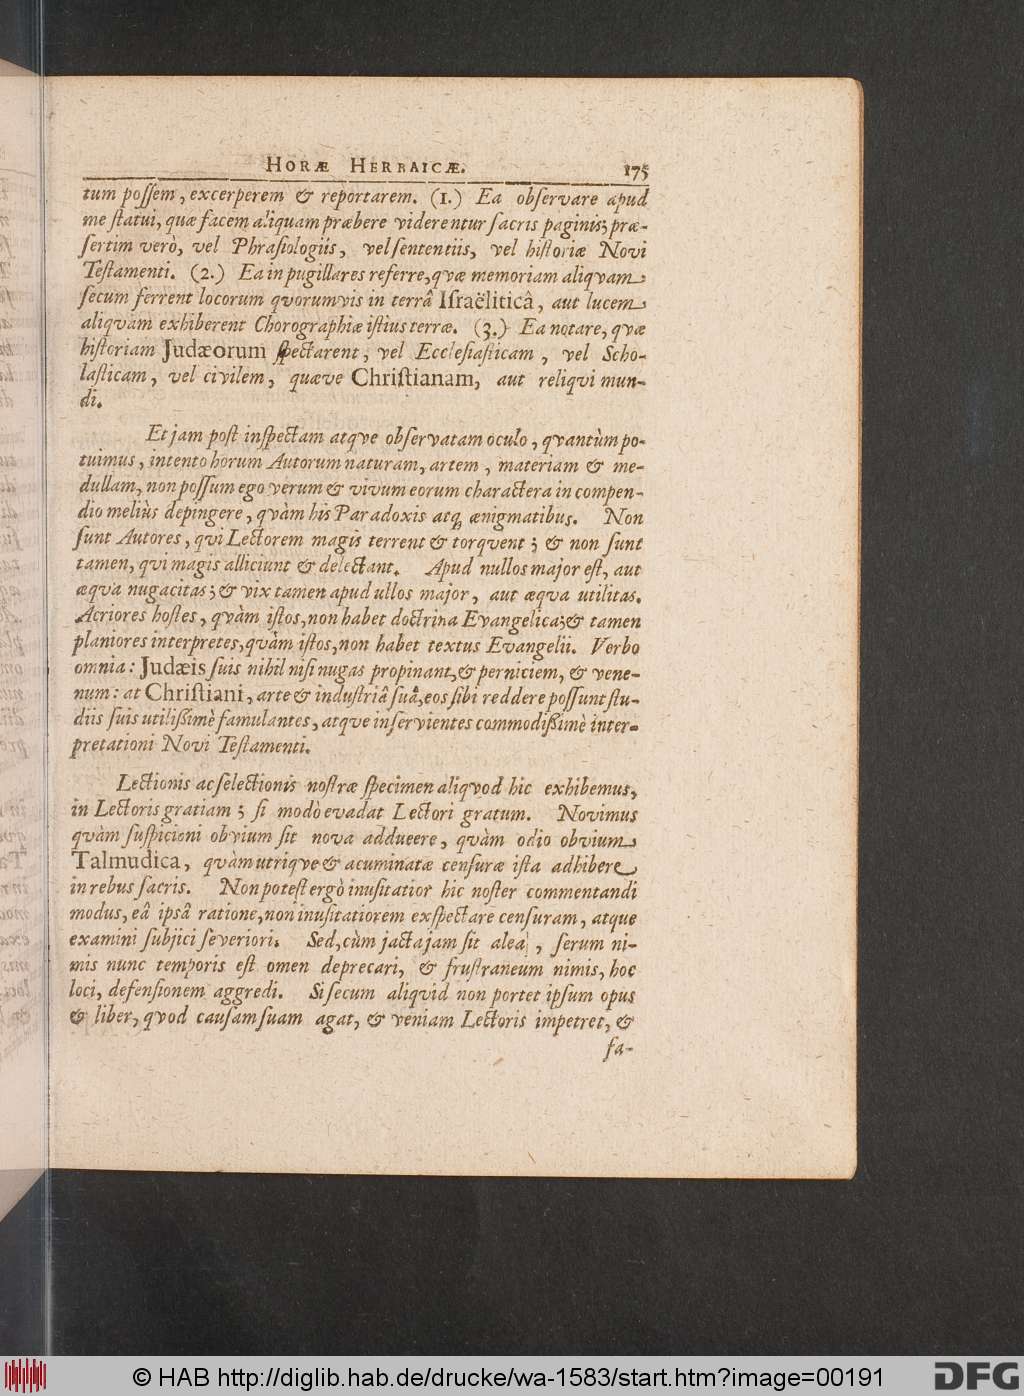 HORÆ HERRAICÆ. 175
tum possem, excerperem & reportarem. (1.) Ea observare apud
me statui, quæ facem aliquam præbere viderentur sacris paginis; præ-
sertim verò, vel Phrasiologiis, vel sententiis, vel historiæ Novi
Testamenti. (2.) Ea in pugillares referre, qvæ memoriam aliqvam
secum ferrent locorum qvorumvis in terrâ Israëliticâ, aut lucem
aliqvam exhiberent Chorographiæ istius terræ. (3.) Ea notare, qvæ
historiam Judæorum spectarent, vel Ecclesiasticam, vel Scho-
lasticam, vel civilem, quæve Christianam, aut reliqvi mun-
di.
Et jam post inspectam atqve observatam oculo, qvantùm po-
tuimus, intento horum Autorum naturam, artem, materiam & me-
dullam, non possum ego verum & vivum eorum charactera in compen-
dio meliùs depingere, qvàm his Paradoxis atq; ænigmatibus. Non
sunt Autores, qvi Lectorem magis terrent & torqvent; & non sunt
tamen, qvi magis alliciunt & delectant. Apud nullos major est, aut
æqva nugacitas; & vix tamen apud ullos major, aut æqva utilitas.
Acriores hostes, qvàm istos, non habet doctrina Evangelica; & tamen
planiores interpretes, qvàm istos, non habet textus Evangelii. Verbo
omnia: Judæis suis nihil nisi nugas propinant, & perniciem, & vene-
num: at Christiani, arte & industriâ suâ, eos sibi reddere possunt stu-
diis suis utilissimè famulantes, atqve inservientes commodissimè inter-
pretationi Novi Testamenti.
Lectionis ac selectionis nostræ specimen aliqvod hic exhibemus,
in Lectoris gratiam; si modò evadat Lectori gratum. Novimus
qvàm suspicioni obvium sit nova addueere, qvàm odio obvium
Talmudica, qvàm utriqve & acuminatæ censuræ ista adhibere
in rebus sacris. Non potest ergò inusitatior hic noster commentandi
modus, eâ ipsâ ratione, non inusitatiorem exspectare censuram, atque
examini subjici severiori. Sed, cùm jacta jam sit alea, serum ni-
mis nunc temporis est omen deprecari, & frustraneum nimis, hoc
loci, defensionem aggredi. Si secum aliqvid non portet ipsum opus
& liber, qvod causam suam agat, & veniam Lectoris impetret, &
fa-
© HAB http://diglib.hab.de/drucke/wa-1583/start.htm?image=00191
DFG